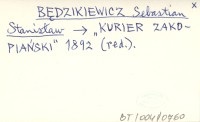 x
BĘDZIKIEWICZ Sebastian
Stanisław → „KURIER ZAKO-
PIAŃSKI" 1892 (red.).
BT/004/0760